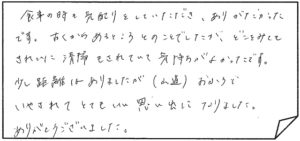 食事の時も気配りをしていただき、ありがたかった
です。古くからあるところとのことでしたが、どこをみても
きれいに清掃をされていて気持ちがよかったです。
少し距離はありましたが(山道)おかげで
いやされてとてもいい思い出になりました。
ありがとうございました。